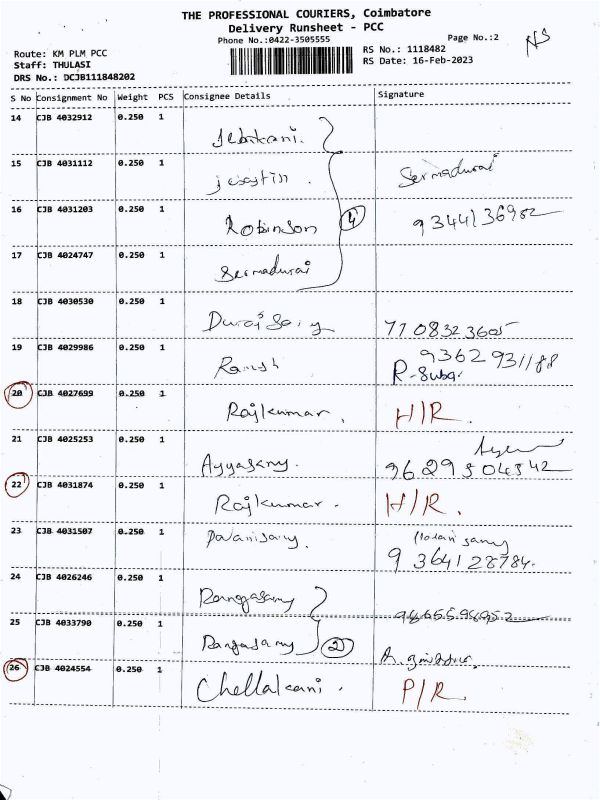 THE PROFESSIONAL COURIERS, Coimbatore
Delivery Runsheet - PCC
Phone No.:0422-3505555
Page No.:2
NS
Route: KM PLM PCC
RS No.: 1118482
Staff: THULASI
RS Date: 16-Feb-2023
DRS No.: DCJB111848202
S No Consignment No Weight PCS Consignee Details Signature
14 CJB 4032912 0.250 1
15 CJB 4031112 0.250 1 Sermadurai
16 CJB 4031203 0.250 1 Robinson 4 9344136982
17 CJB 4024747 0.250 1 Sermadurai
18 CJB 4030530 0.250 1 Duraisamy 7708323605
19 CJB 4029986 0.250 1 Ramesh 9362931188
R-Suba.
20 CJB 4027699 0.250 1 Rajkumar. H/R.
21 CJB 4025253 0.250 1 Ayyasamy. 9629504542
22 CJB 4031874 0.250 1 Rajkumar. H/R.
23 CJB 4031507 0.250 1 9364128784.
24 CJB 4026246 0.250 1 Rangasamy
25 CJB 4033790 0.250 1 Rangasamy 2
26 CJB 4024554 0.250 1 Chellakani. P/R